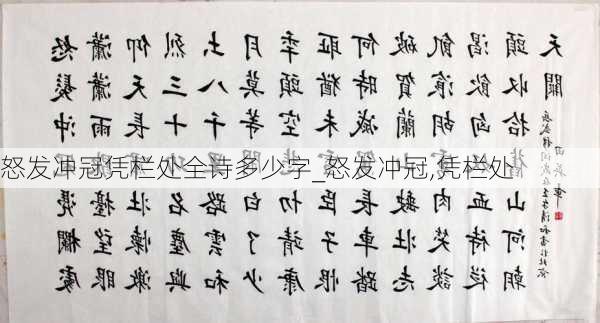 怒发冲冠凭栏处全诗多少字_怒发冲冠,凭栏处
怒髮冲冠憑欄處
瀟瀟雨歇擡望眼
仰天長嘯壯懷激
烈三十功名塵與
土八千里路雲和
月莫等閑白了少
年頭空悲切靖康
耻猶未雪臣子恨
何時滅駕長車踏
破賀蘭山缺壯志
飢湌胡虜肉笑談
渴飲匈奴血待從
頭收拾舊山河朝
天闕